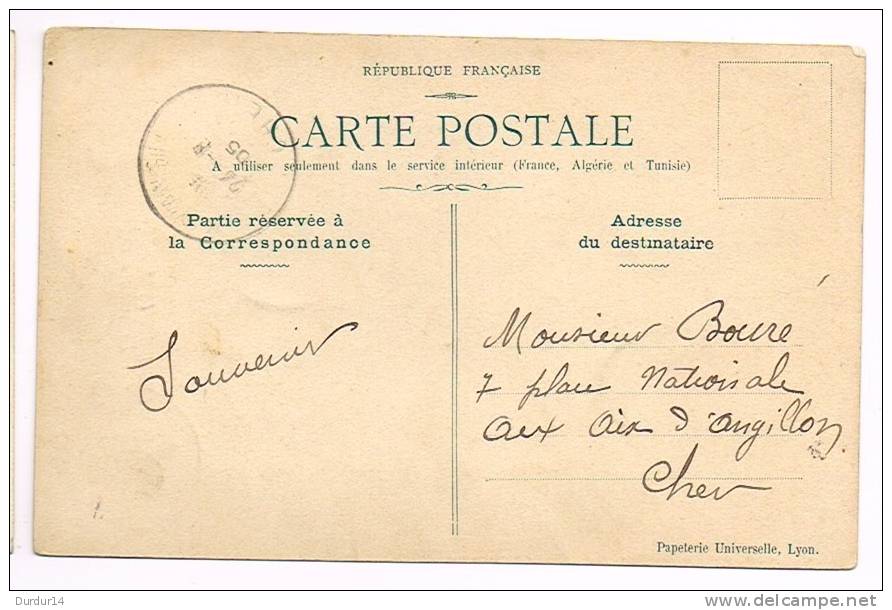 RÉPUBLIQUE FRANÇAISE
CARTE POSTALE
A utiliser seulement dans le service intérieur (France, Algérie et Tunisie)
Partie réservée à
la Correspondance
Souvenir
Adresse
du destinataire
Monsieur Bouré
7 place Nationale
aux Aix d'Angillon
Cher
Papeterie Universelle, Lyon.
24 -8
05
Durdur14
www.delcampe.net